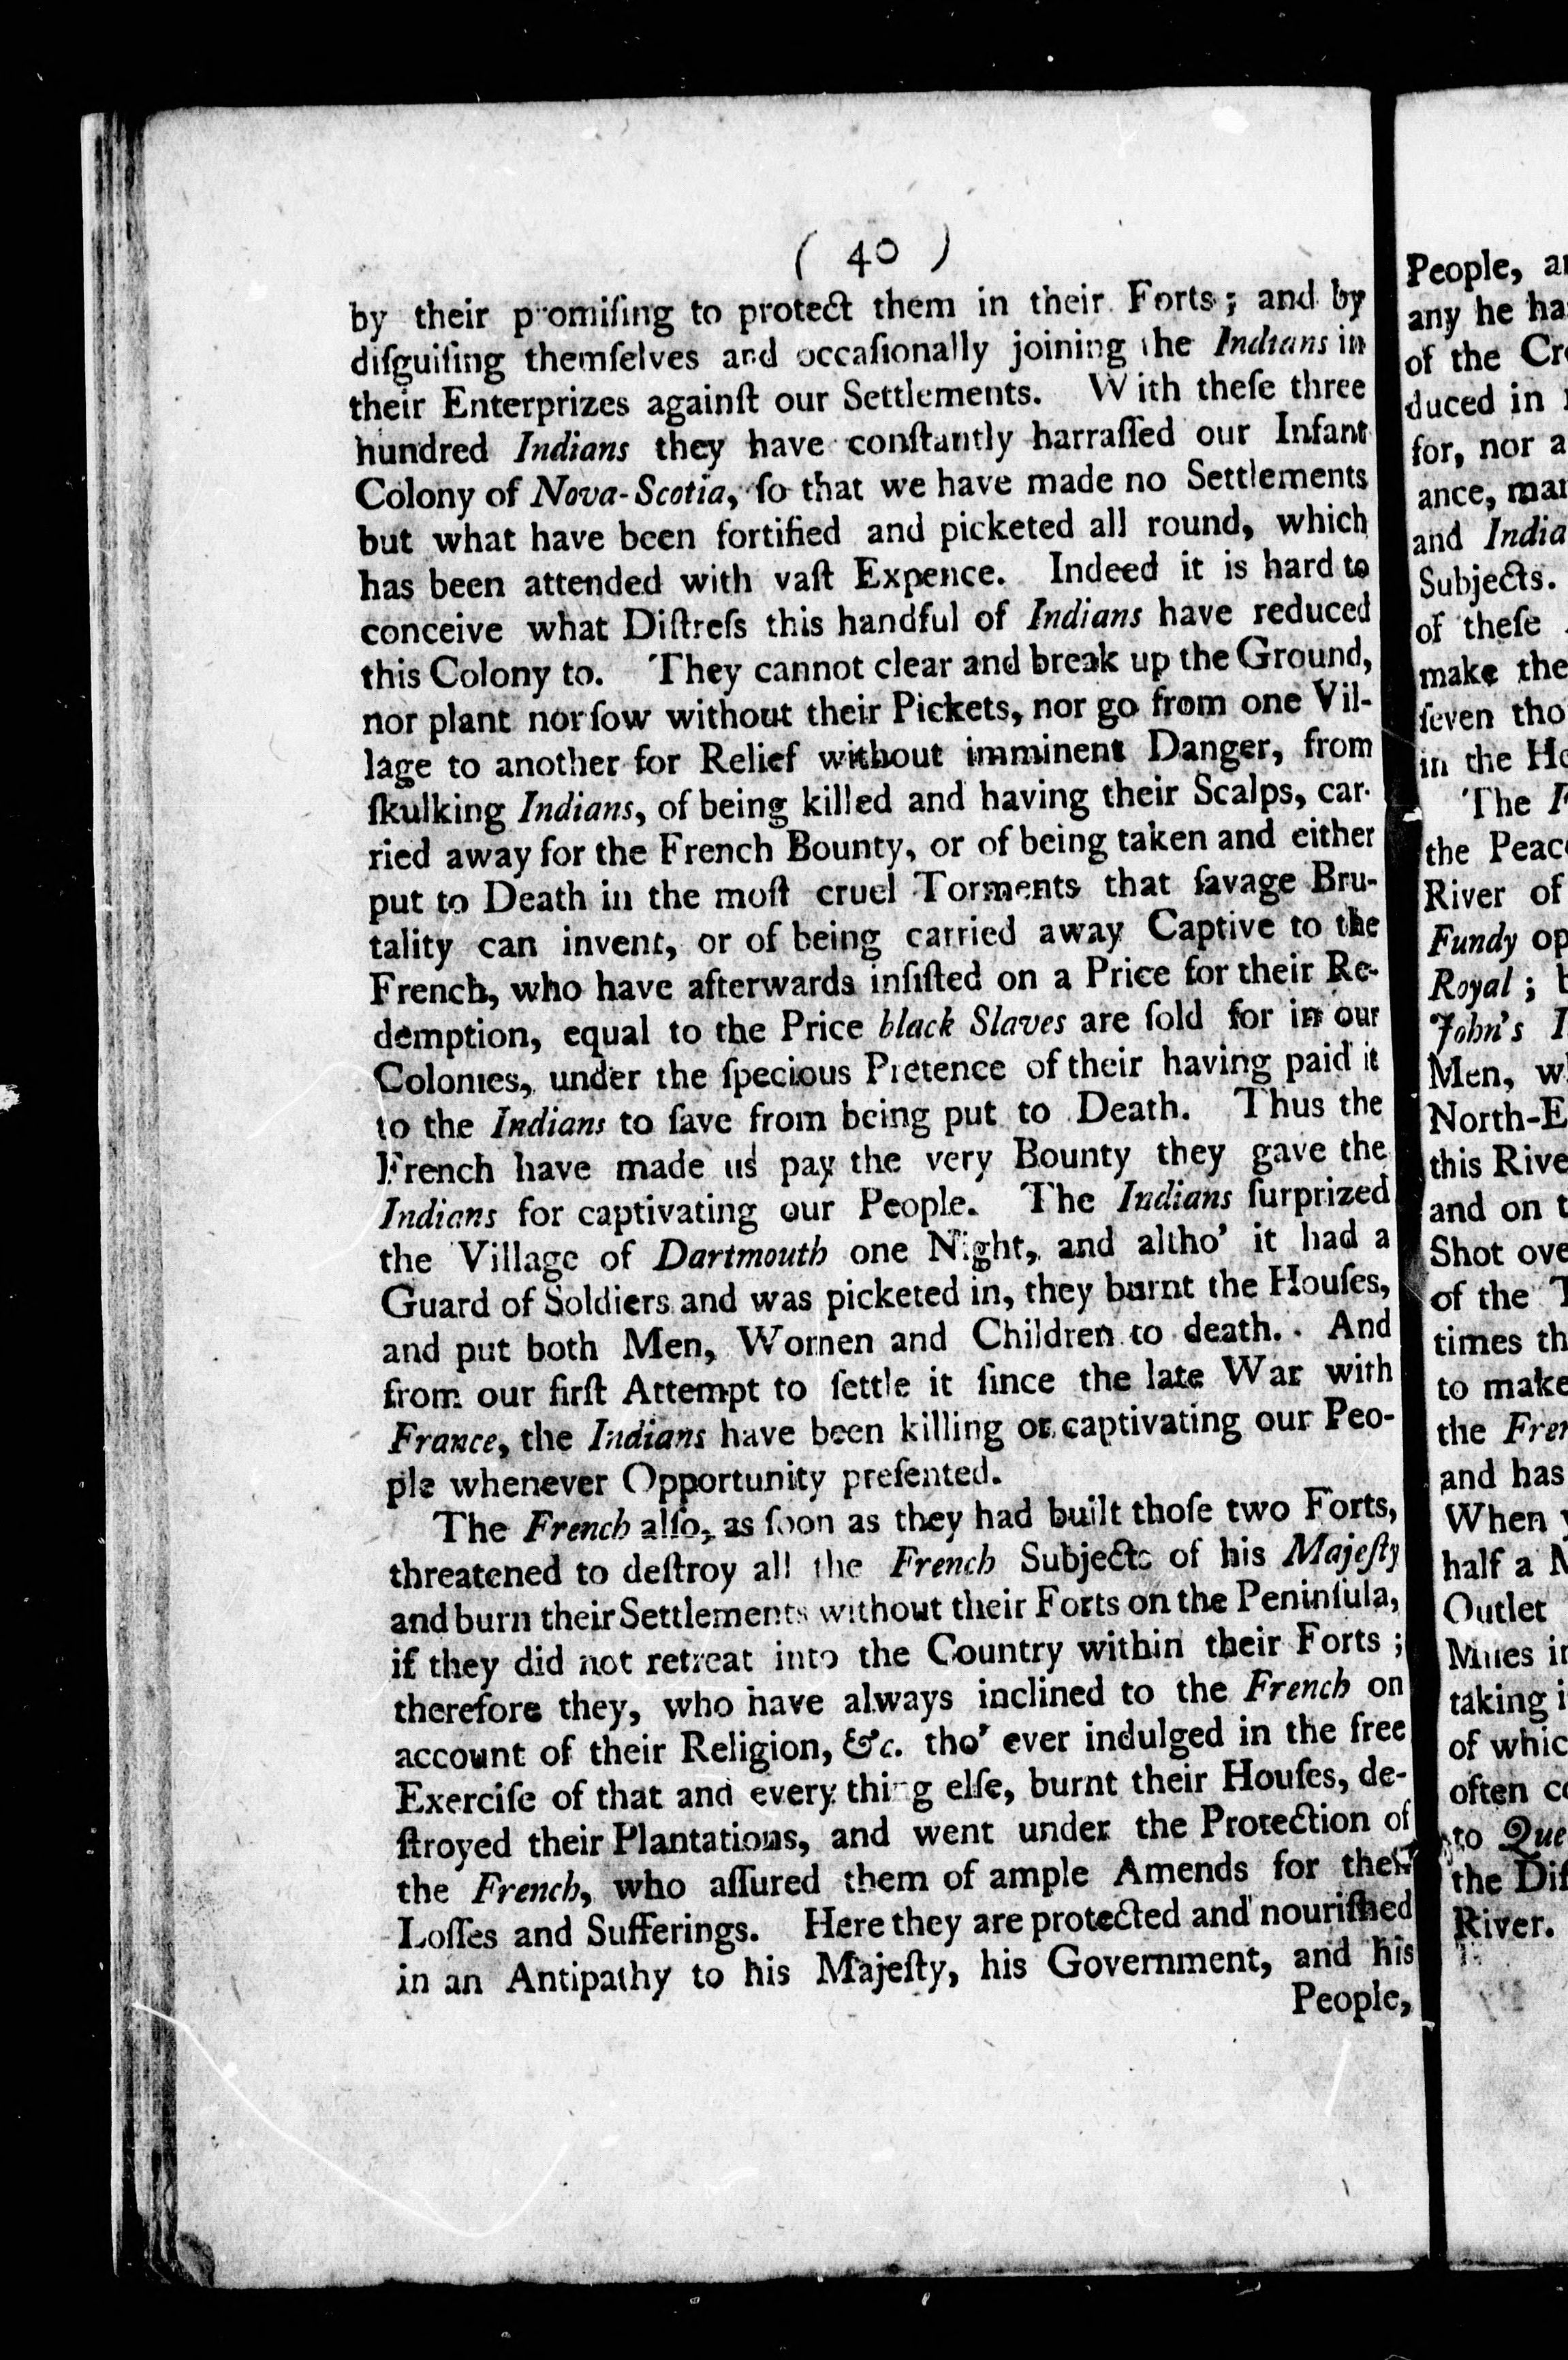 ( 40 )
by their promiſing to protect them in their Forts; and by
diſguiſing themſelves and occaſionally joining the Indians in
their Enterprizes againſt our Settlements. With theſe three
hundred Indians they have conſtantly harraſſed our Infant
Colony of Nova-Scotia, ſo that we have made no Settlements
but what have been fortified and picketed all round, which
has been attended with vaſt Expence. Indeed it is hard to
conceive what Diſtreſs this handful of Indians have reduced
this Colony to. They cannot clear and break up the Ground,
nor plant nor ſow without their Pickets, nor go from one Vil-
lage to another for Relief without imminent Danger, from
ſkulking Indians, of being killed and having their Scalps, car-
ried away for the French Bounty, or of being taken and either
put to Death in the moſt cruel Torments that ſavage Bru-
tality can invent, or of being carried away Captive to the
French, who have afterwards inſiſted on a Price for their Re-
demption, equal to the Price black Slaves are ſold for in our
Colonies, under the ſpecious Pretence of their having paid it
to the Indians to ſave from being put to Death. Thus the
French have made us pay the very Bounty they gave the
Indians for captivating our People. The Indians ſurprized
the Village of Dartmouth one Night, and altho' it had a
Guard of Soldiers and was picketed in, they burnt the Houſes,
and put both Men, Women and Children to death. And
from our firſt Attempt to ſettle it ſince the late War with
France, the Indians have been killing or captivating our Peo-
ple whenever Opportunity preſented.
The French alſo, as ſoon as they had built thoſe two Forts,
threatened to deſtroy all the French Subjects of his Majeſty
and burn their Settlements without their Forts on the Peninſula,
if they did not retreat into the Country within their Forts;
therefore they, who have always inclined to the French on
account of their Religion, &c. tho' ever indulged in the free
Exerciſe of that and every thing elſe, burnt their Houſes, de-
ſtroyed their Plantations, and went under the Protection of
the French, who aſſured them of ample Amends for their
Loſſes and Sufferings. Here they are protected and nouriſhed
in an Antipathy to his Majeſty, his Government, and his
People,
People,
any he
of the
duced in
for, nor
ance,
and
Subjects.
of theſe
make the
ſeven
in the
The
the
River of
Fundy
Royal;
John's
Men,
North-E
this
and on
Shot
of the
times
to make
the
and has
When
half a
Outlet
Miles
taking
of
often
to
the
River.